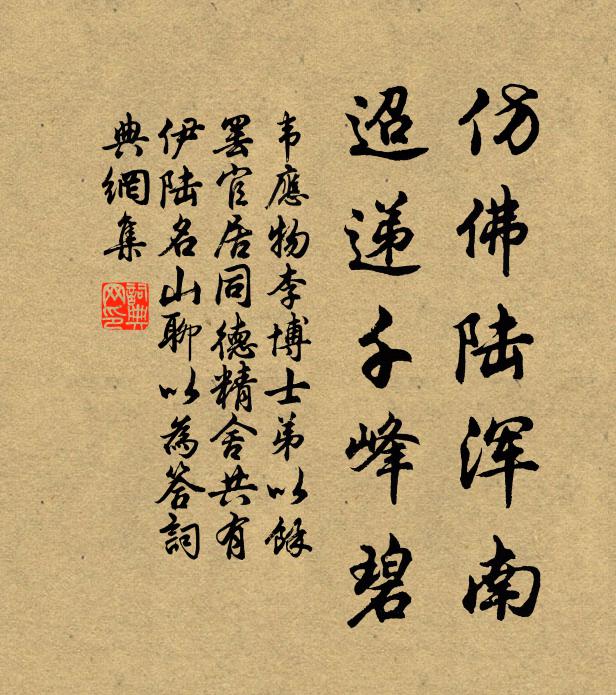 仿佛陆浑南
迢递千峰碧
韦應物李博士弟以餘
罢官居同德精舍共有
伊陆名山聊以為答詞
典網集
詞典网印